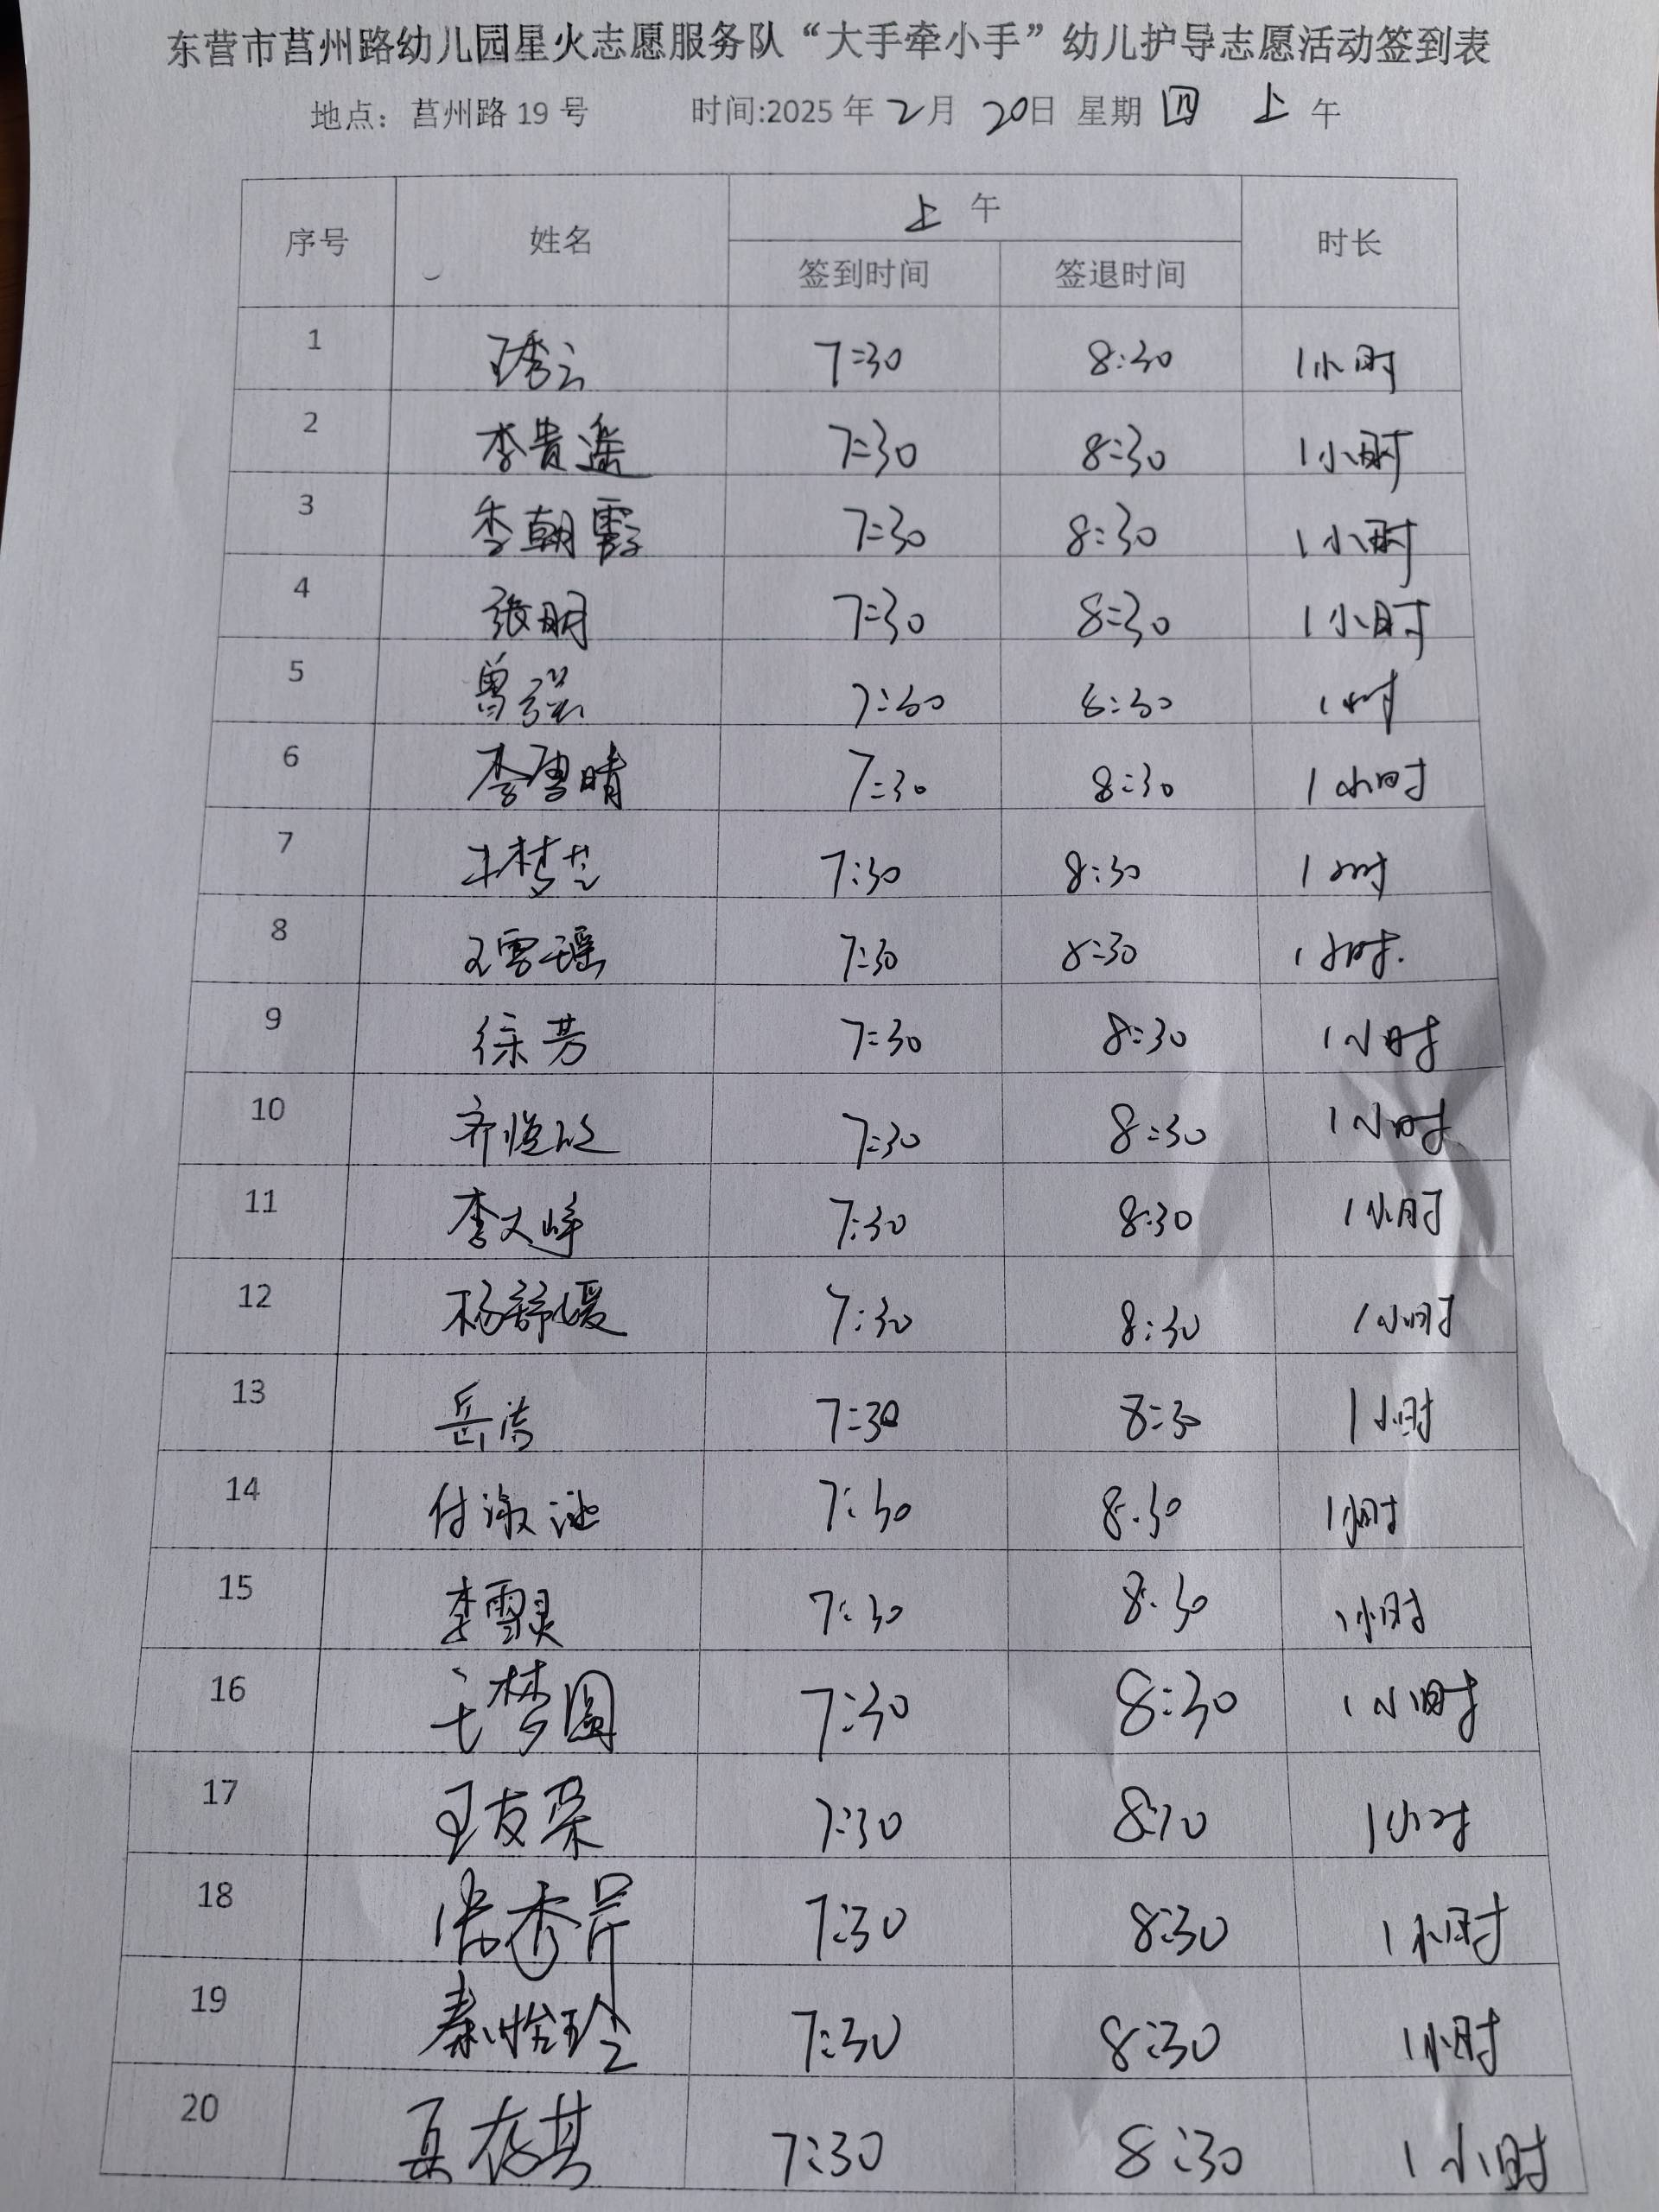 东营市莒州路幼儿园星火志愿服务队“大手牵小手”幼儿护导志愿活动签到表
地点：莒州路 19 号 时间:2025 年 2 月 20日 星期 四 上 午
序号 姓名 上 午 时长
签到时间 签退时间
1 王秀云 7:30 8:30 1小时
2 李贵遥 7:30 8:30 1小时
3 李朝霞 7:30 8:30 1小时
4 张明 7:30 8:30 1小时
5 曾强 7:30 8:30 1小时
6 李雪晴 7:30 8:30 1小时
7 王梦芸 7:30 8:30 1小时
8 王雪瑶 7:30 8:30 1小时.
9 徐芳 7:30 8:30 1小时
10 齐 7:30 8:30 1小时
11 李文峰 7:30 8:30 1小时
12 杨舒媛 7:30 8:30 1小时
13 岳洁 7:30 8:30 1小时
14 付淑 7:30 8:30 1小时
15 李雪灵 7:30 8:30 1小时
16 王梦圆 7:30 8:30 1小时
17 王友朵 7:30 8:30 1小时
18 张秀芹 7:30 8:30 1小时
19 秦怡玲 7:30 8:30 1小时
20 存其 7:30 8:30 1小时